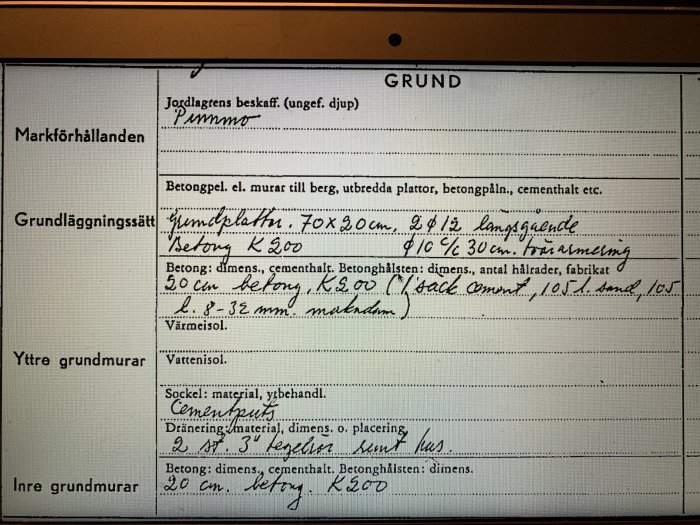 GRUND
Jordlagrens beskaff. (ungef. djup)
Markförhållanden
Pinnmo
Betongpel. el. murar till berg, utbredda plattor, betongpåln., cementhalt etc.
Grundläggningssätt
Grundplattor. 70x20cm, 2 ϕ 12 längsgående
Betong K200 ϕ10 c/c 30cm. tvärarmering
Betong: dimens., cementhalt. Betonghålsten: dimens., antal hålrader, fabrikat
20 cm betong, K200 (1 säck cement, 105 l. sand, 105
l. 8-32 mm. makadam)
Värmeisol.
Yttre grundmurar
Vattenisol.
Sockel: material, ytbehandl.
Cementputs
Dränering: material, dimens. o. placering
2 st. 3" tegelrör runt hus.
Betong: dimens., cementhalt. Betonghålsten: dimens.
Inre grundmurar
20 cm. betong. K200